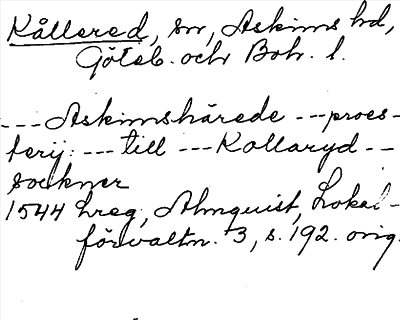 Kållered, sn, Askims hd,
Göteb. och Boh. l.
---Askimshärede ---proes-
terij: ---till ---Kollaryd--
sockner
1544 hreg, Almquist, Lokal-
förvaltn. 3, s. 192. orig.